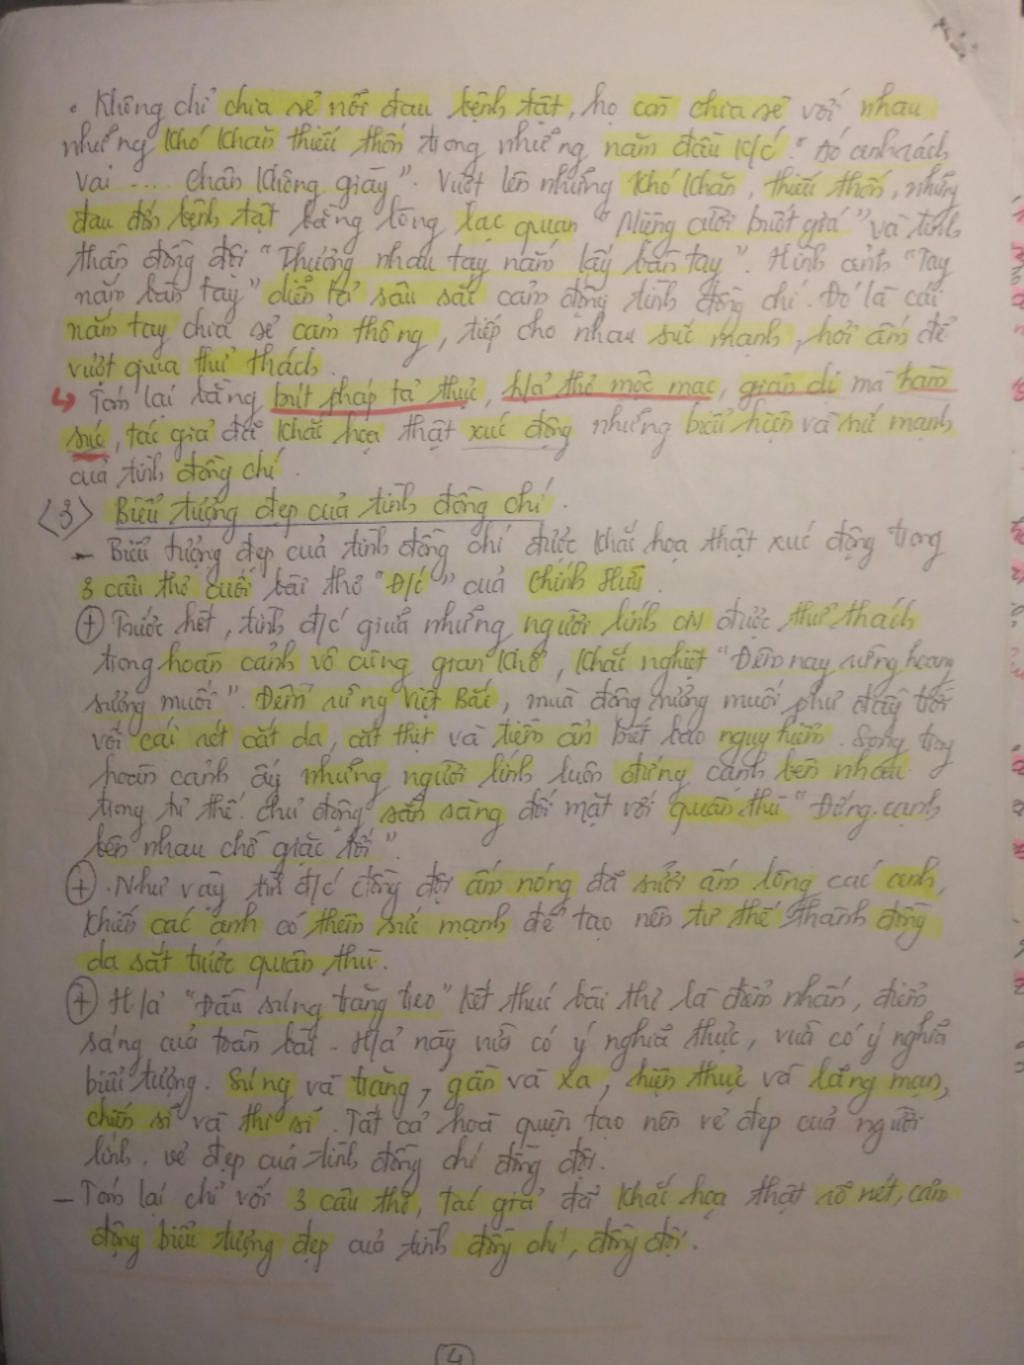 • Không chỉ chia sẻ nỗi đau bệnh tật, họ còn chia sẻ với nhau
những khó khăn thiếu thốn trong những năm đầu K/c "Áo anh rách
vai .... chân không giày". Vượt lên những khó khăn, thiếu thốn, những
đau đớn bệnh tật bằng lòng lạc quan "Miệng cười buốt giá" và tinh
thần đồng đội "Thương nhau tay nắm lấy bàn tay". Hình ảnh "Tay
nắm bàn tay" diễn tả sâu sắc cảm động tình đồng chí. Đó là cái
nắm tay chia sẻ cảm thông, tiếp cho nhau sức mạnh, hơi ấm để
vượt qua thử thách.
↳ Tóm lại bằng bút pháp tả thực, h/ả thơ mộc mạc, giản dị mà hàm
súc, tác giả đã khắc họa thật xúc động những biểu hiện và sức mạnh
của tình đồng chí.
<3> Biểu tượng đẹp của tình đồng chí.
- Biểu tượng đẹp của tình đồng chí được khắc họa thật xúc động trong
3 câu thơ cuối bài thơ "Đ/c" của Chính Hữu.
+ Trước hết, tình đ/c giữa những người lính CM được thử thách
trong hoàn cảnh vô cùng gian khổ, khắc nghiệt "Đêm nay rừng hoang
sương muối". Đêm rừng Việt Bắc, mùa đông sương muối phủ đầy trời
với cái rét cắt da, cắt thịt và tiềm ẩn biết bao nguy hiểm. Song trong
hoàn cảnh ấy những người lính luôn đứng cạnh bên nhau
trong tư thế chủ động sẵn sàng đối mặt với quân thù "Đứng cạnh
bên nhau chờ giặc tới".
+ Như vậy tình đ/c đồng đội ấm nóng đã sưởi ấm lòng các anh,
khiến các anh có thêm sức mạnh để tạo nên tư thế thành đồng
da sắt trước quân thù.
+ H/ả "Đầu súng trăng treo" kết thúc bài thơ là điểm nhấn, điểm
sáng của toàn bài. H/ả này vừa có ý nghĩa thực, vừa có ý nghĩa
biểu tượng. Súng và trăng, gần và xa, hiện thực và lãng mạn,
chiến sĩ và thi sĩ. Tất cả hoà quyện tạo nên vẻ đẹp của người
lính, vẻ đẹp của tình đồng chí đồng đội.
- Tóm lại chỉ với 3 câu thơ, tác giả đã khắc họa thật rõ nét, cảm
động biểu tượng đẹp của tình đồng chí, đồng đội.
4